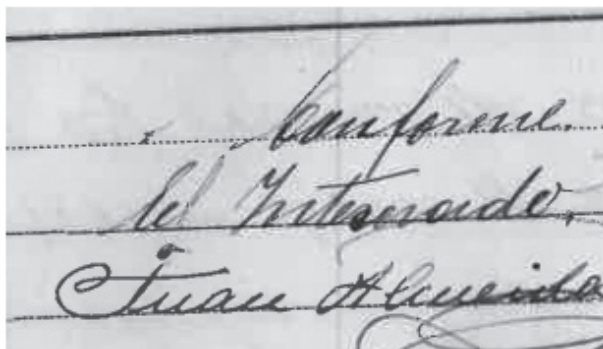 Conforme.
El Interesado,
Juan Almeida